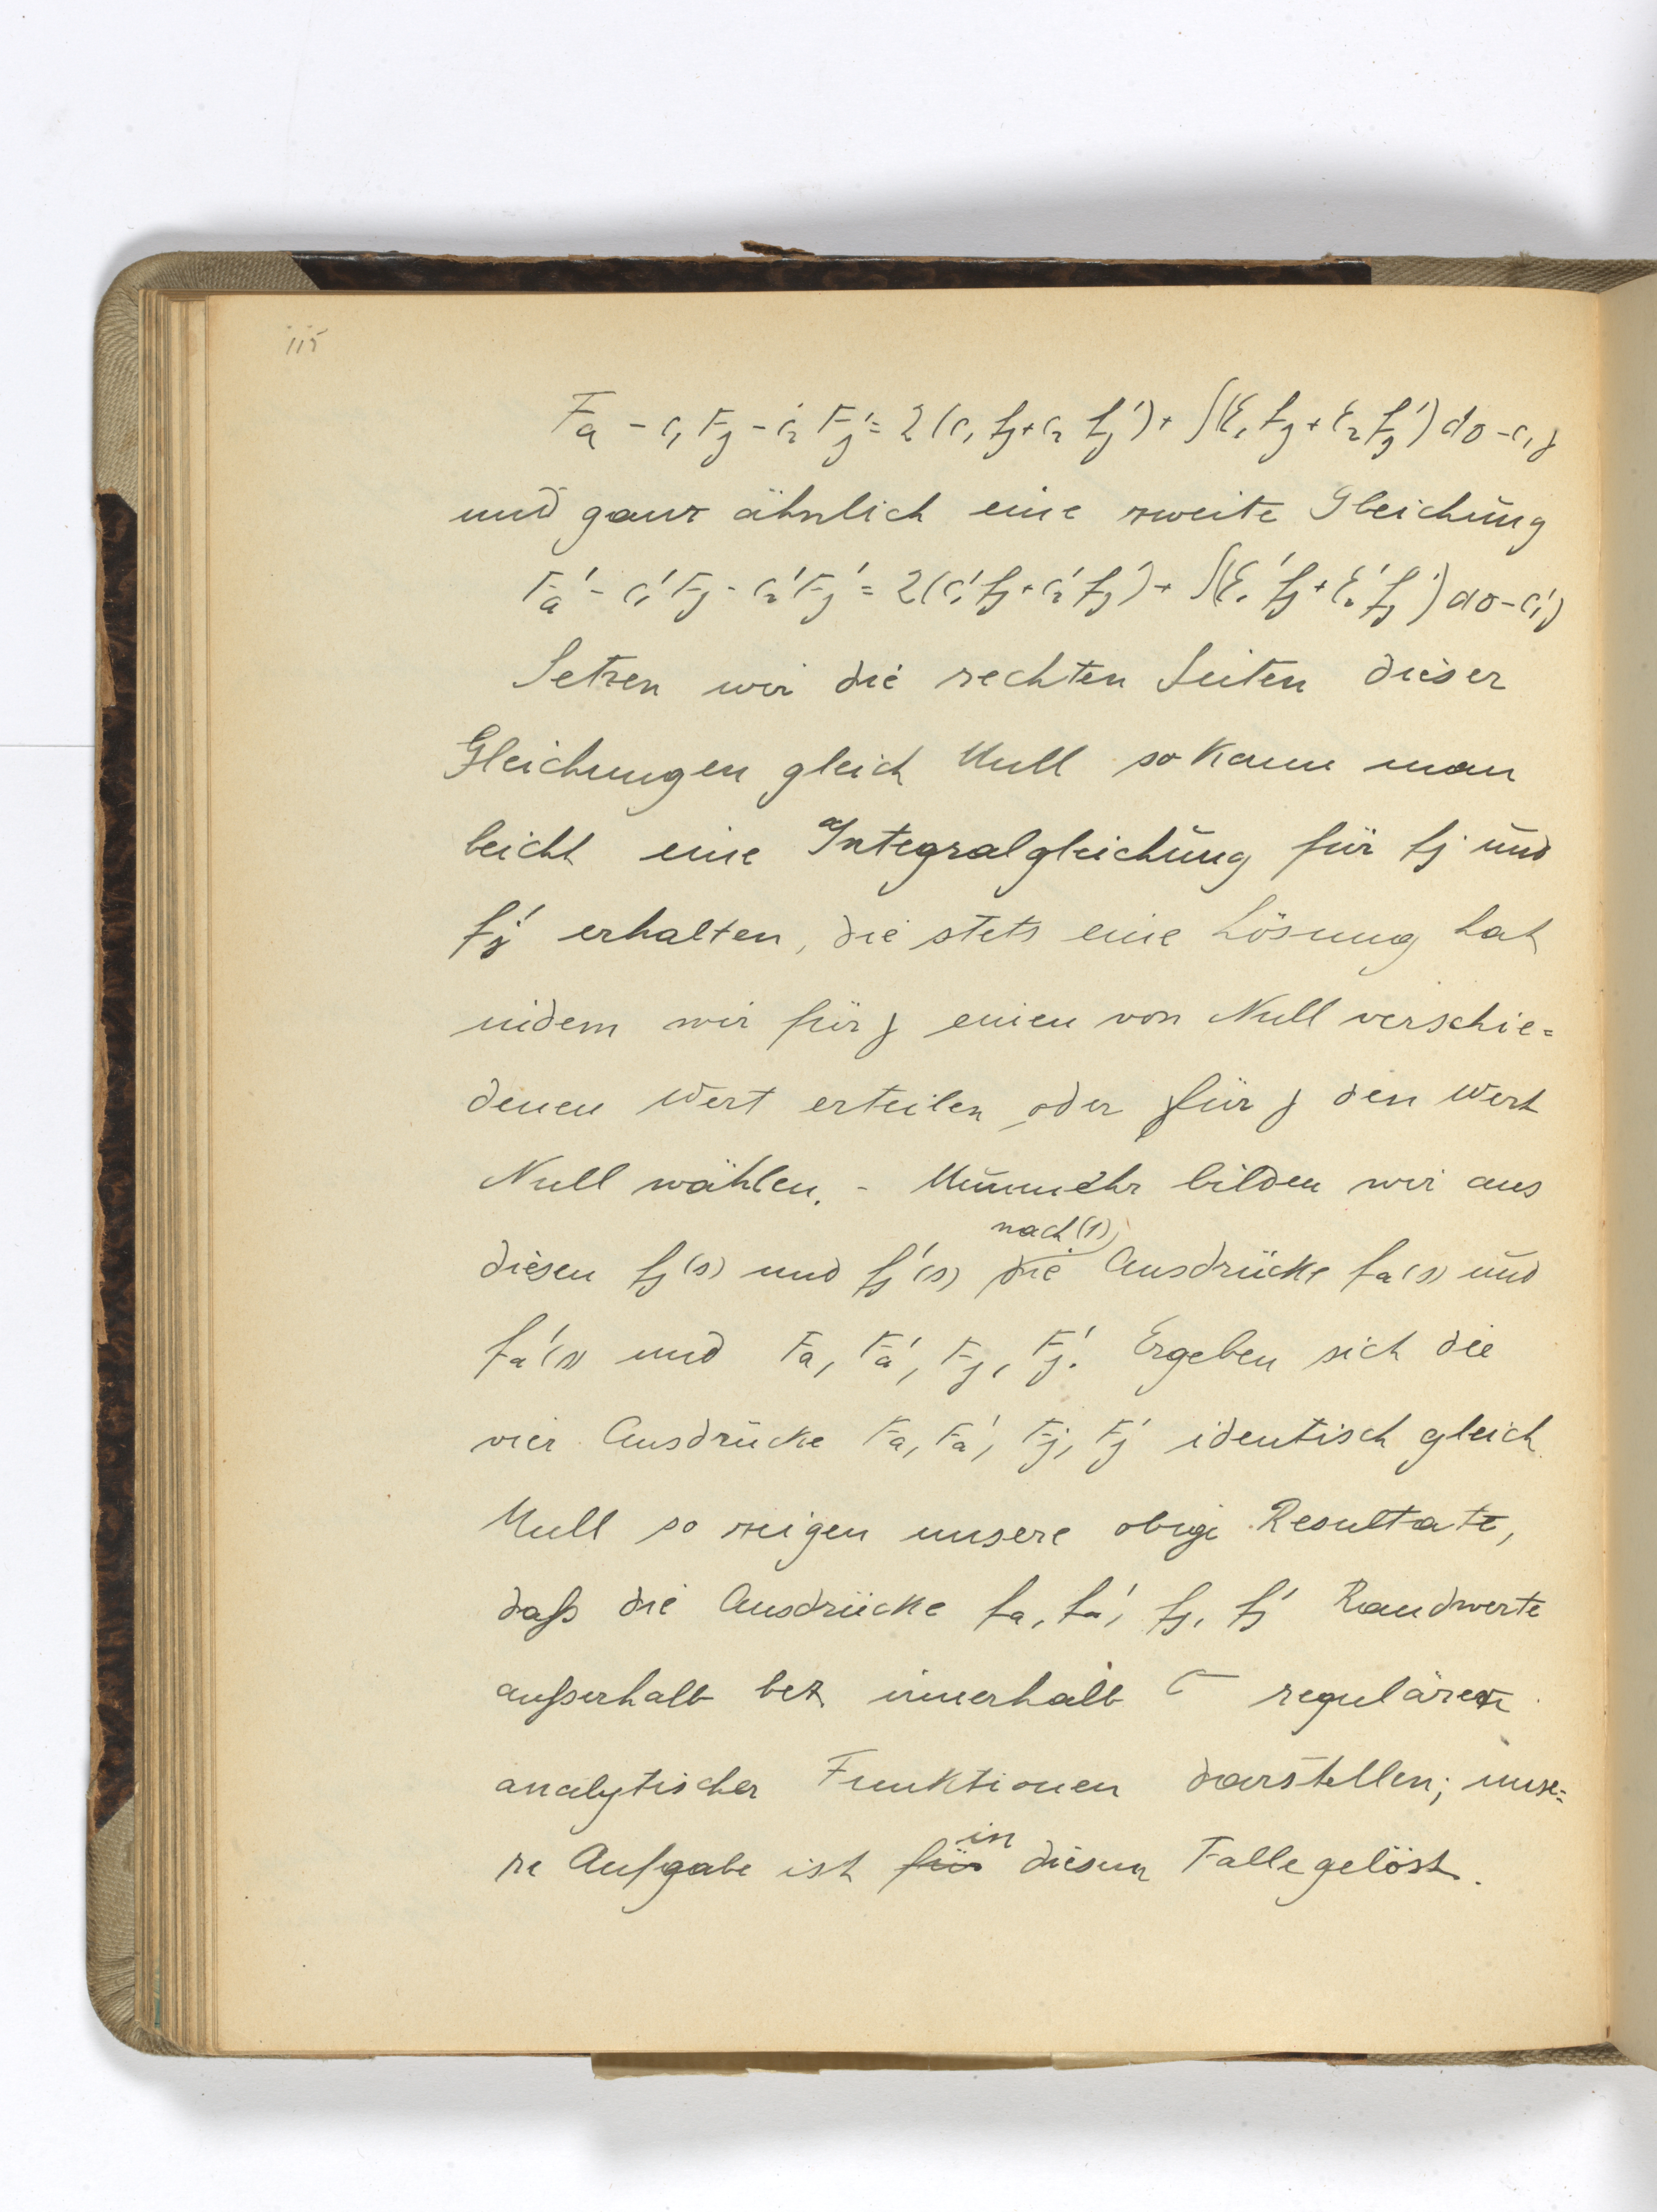 115
F_a - c_1 F_j - c_2 F_j' = 2(c_1 f_j + c_2 f_j') + ∫(E_1 f_j + E_2 f_j') dσ - c_1 j
und ganz ähnlich eine zweite Gleichung
F_a' - c_1' F_j - c_2' F_j' = 2(c_1' f_j + c_2' f_j') + ∫(E_1' f_j + E_2' f_j') dσ - c_1' j
Setzen wir die rechten Seiten dieser
Gleichungen gleich Null so kann man
leicht eine Integralgleichung für f_j und
f_j' erhalten, die stets eine Lösung hat
indem wir für j einen von Null verschie=
denen Wert erteilen oder für j den Wert
Null wählen. - Nunmehr bilden wir aus
nach (1)
diesen f_j(s) und f_j'(s) die Ausdrücke f_a(s) und
f_a'(s) und F_a, F_a', F_j, F_j'. Ergeben sich die
vier Ausdrücke F_a, F_a', F_j, F_j' identisch gleich
Null so zeigen unsere obige Resultate,
daß die Ausdrücke f_a, f_a', f_j, f_j' Randwerte
außerhalb bez innerhalb C regulären
analytischer Funktionen darstellen; unse=
in
re Aufgabe ist für diesem Falle gelöst.